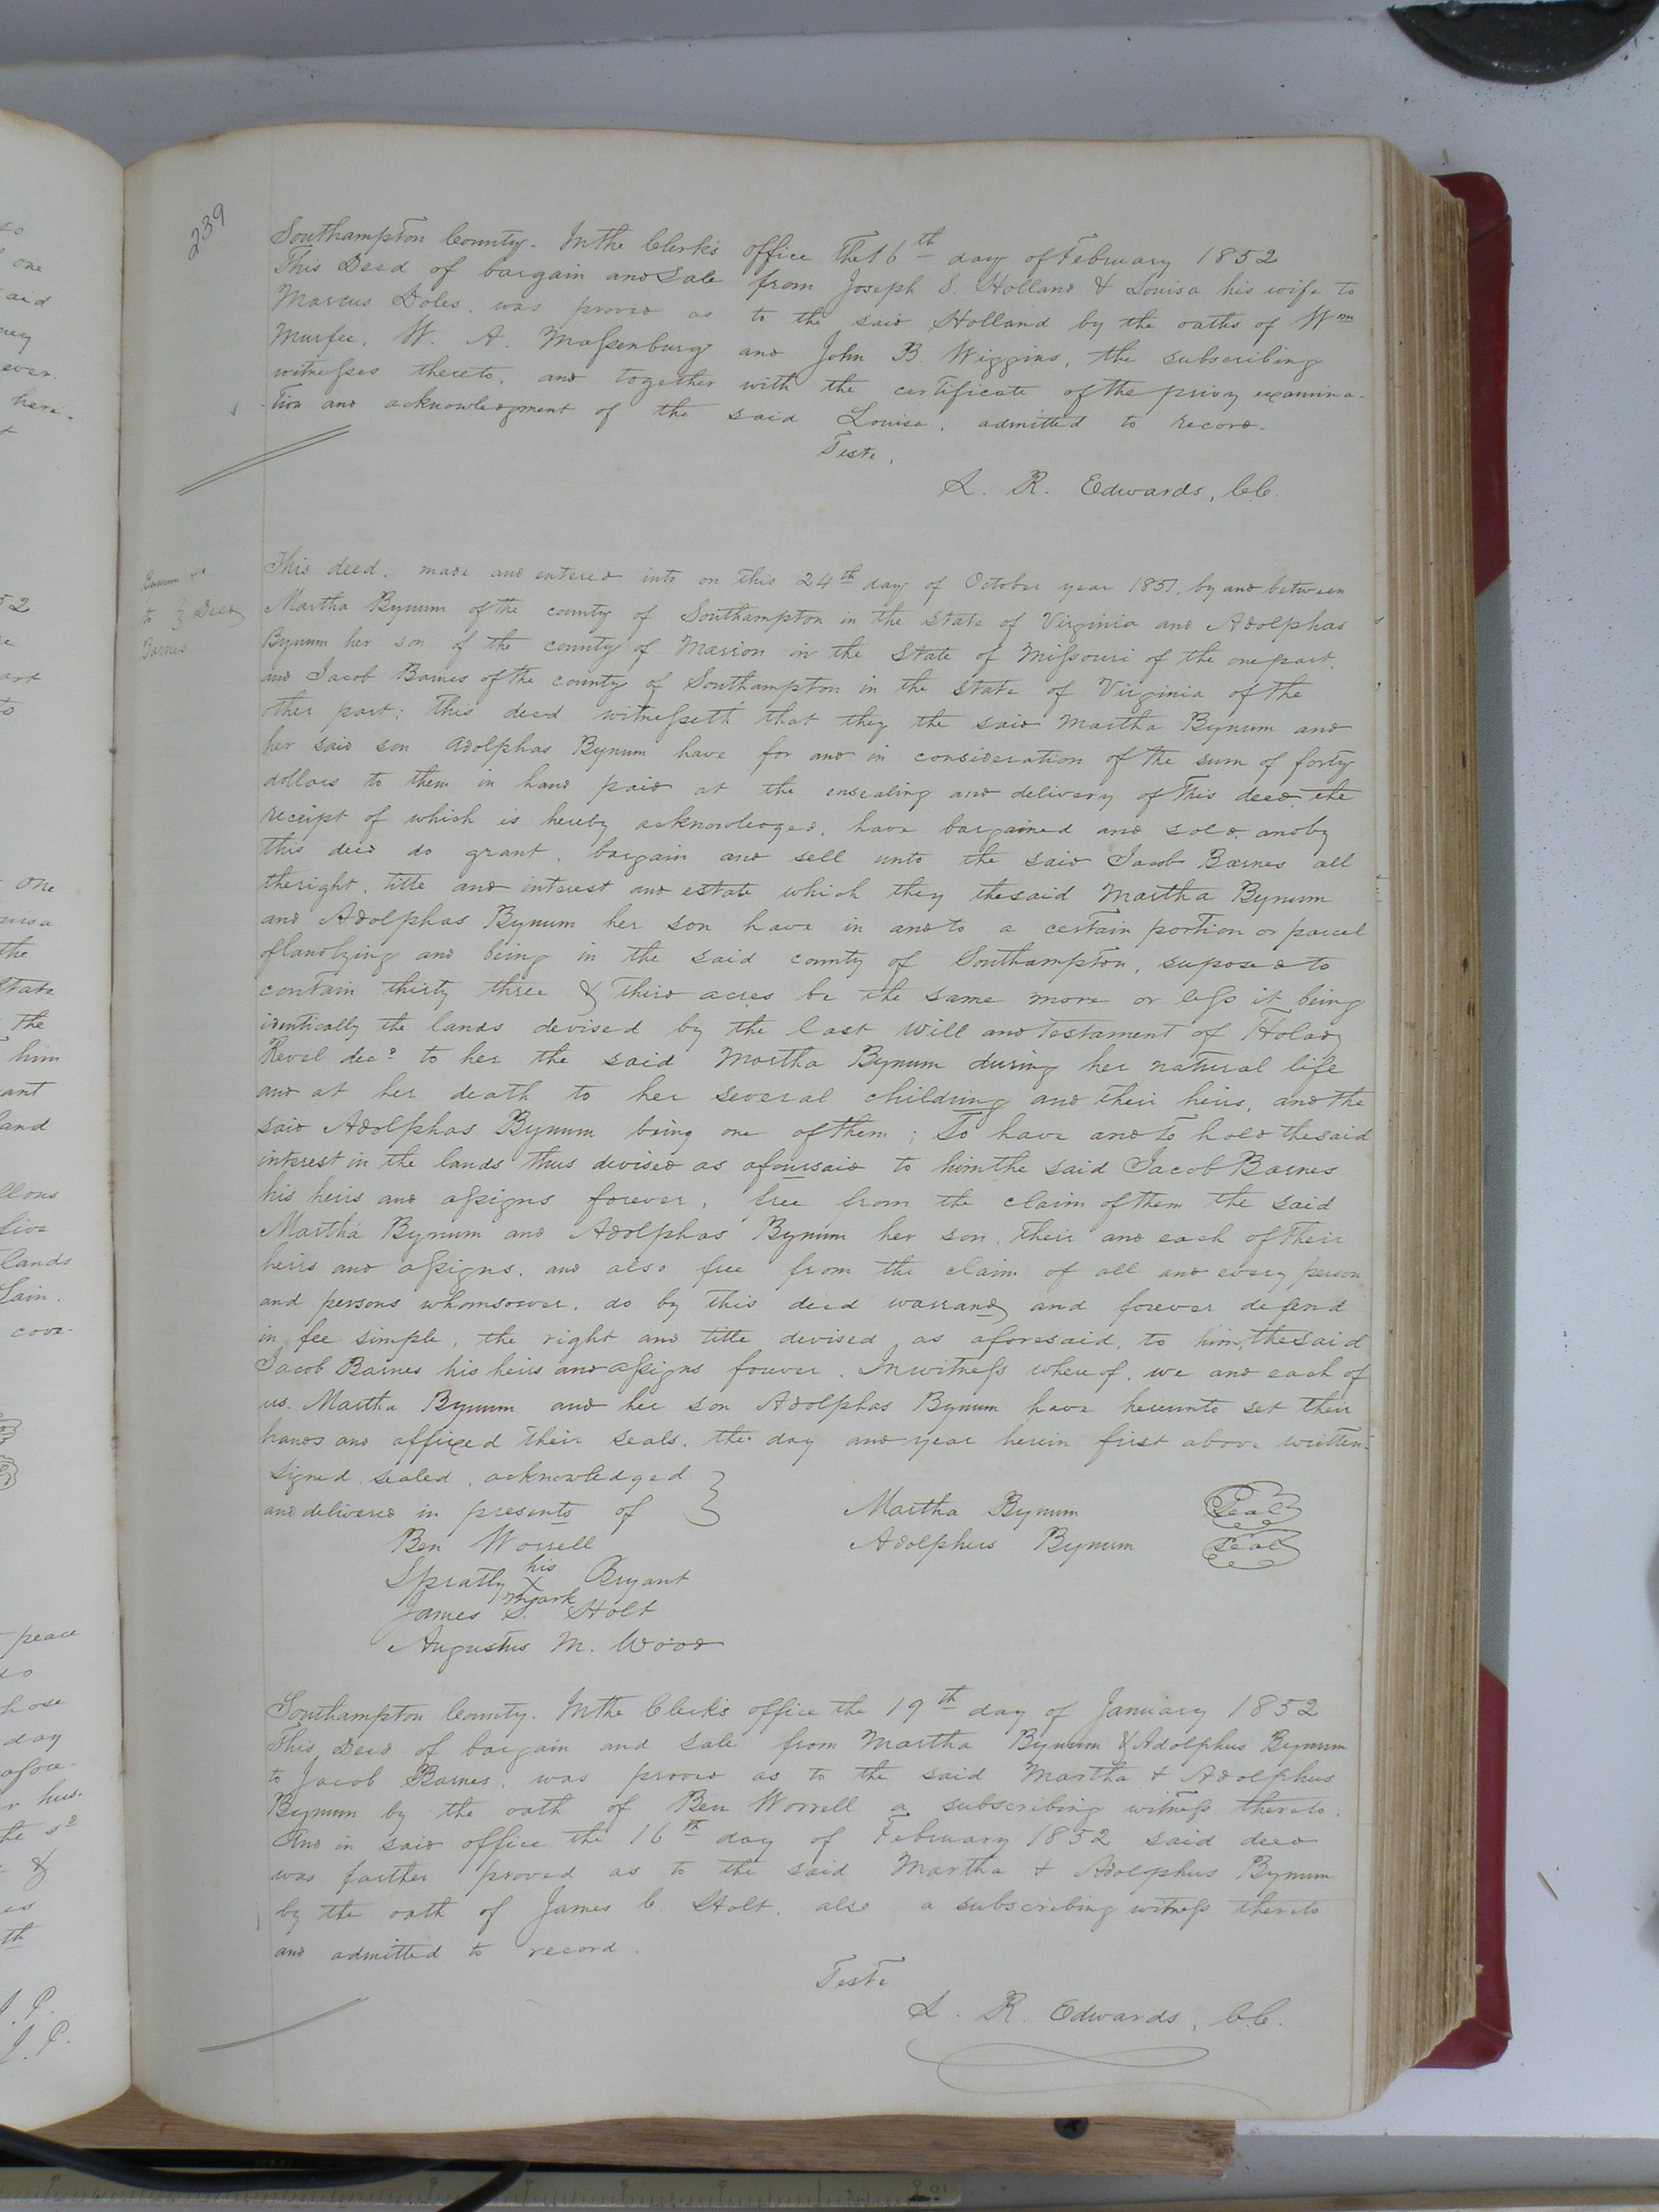 239
Southampton County. In the Clerk's office the 16th day of February 1852
This Deed of bargain and Sale from Joseph S. Holland & Louisa his wife to
Marcus Doles, was proved as to the said Holland by the oaths of Wm
Murfee, W. A. Massenburg and John B. Wiggins, the subscribing
witnesses thereto, and together with the certificate of the privy examina-
tion and acknowledgment of the said Louisa, admitted to record.
Teste,
L. R. Edwards, C.C.
Bynum &c
to } Deed
Barnes
This deed, made and entered into on this 24th day of October year 1851, by and between
Martha Bynum of the county of Southampton in the State of Virginia and Adolphas
Bynum her son of the county of Marion in the State of Missouri of the one part,
and Jacob Barnes of the county of Southampton in the State of Virginia of the
other part; this deed witnesseth that they the said Martha Bynum and
her said son Adolphas Bynum have for and in consideration of the sum of forty
dollars to them in hand paid at the ensealing and delivery of this deed, the
receipt of which is hereby acknowledged, have bargained and sold, and by
this deed do grant, bargain and sell unto the said Jacob Barnes all
the right, title and interest and estate which they the said Martha Bynum
and Adolphas Bynum her son have in and to a certain portion or parcel
of land lying and being in the said county of Southampton, suposed to
contain thirty three & third acres be the same more or less it being
identically the lands devised by the last will and Testament of Holady
Revel decd to her the said Martha Bynum during her natural life
and at her death to her several childring and their heirs, and the
said Adolphas Bynum being one of them; To have and to hold the said
interest in the lands thus devised as afoursaid to him the said Jacob Barnes
his heirs and assigns forever, free from the claim of them the said
Martha Bynum and Adolphas Bynum her son, their and each of their
heirs and assigns, and also free from the claim of all and every person
and persons whomsoever, do by this deed warrandy and forever defend
in fee simple, the right and title devised as aforesaid, to him, the said
Jacob Barnes his heirs and assigns forever. In witness whereof, we and each of
us, Martha Bynum and her son Adolphas Bynum have hereunto set their
hands and affixed their seals, the day and year herein first above written.
Signed, sealed, acknowledged
and delivered in presents of }
Martha Bynum Seal
Adolpheus Bynum Seal
Ben Worrell
his
Spratly X Bryant
mark
James S. Holt
Augustus M. Wood
Southampton County. In the Clerk's office the 19th day of January 1852
This Deed of bargain and Sale from Martha Bynum & Adolphus Bynum
to Jacob Barnes, was proved as to the said Martha & Adolphus
Bynum by the oath of Ben Worrell a subscribing witness thereto.
And in said office the 16th day of February 1852 said deed
was farther proved as to the said Martha & Adolphus Bynum
by the oath of James C. Holt, also a subscribing witness thereto
and admitted to record.
Teste
L. R. Edwards, C.C.